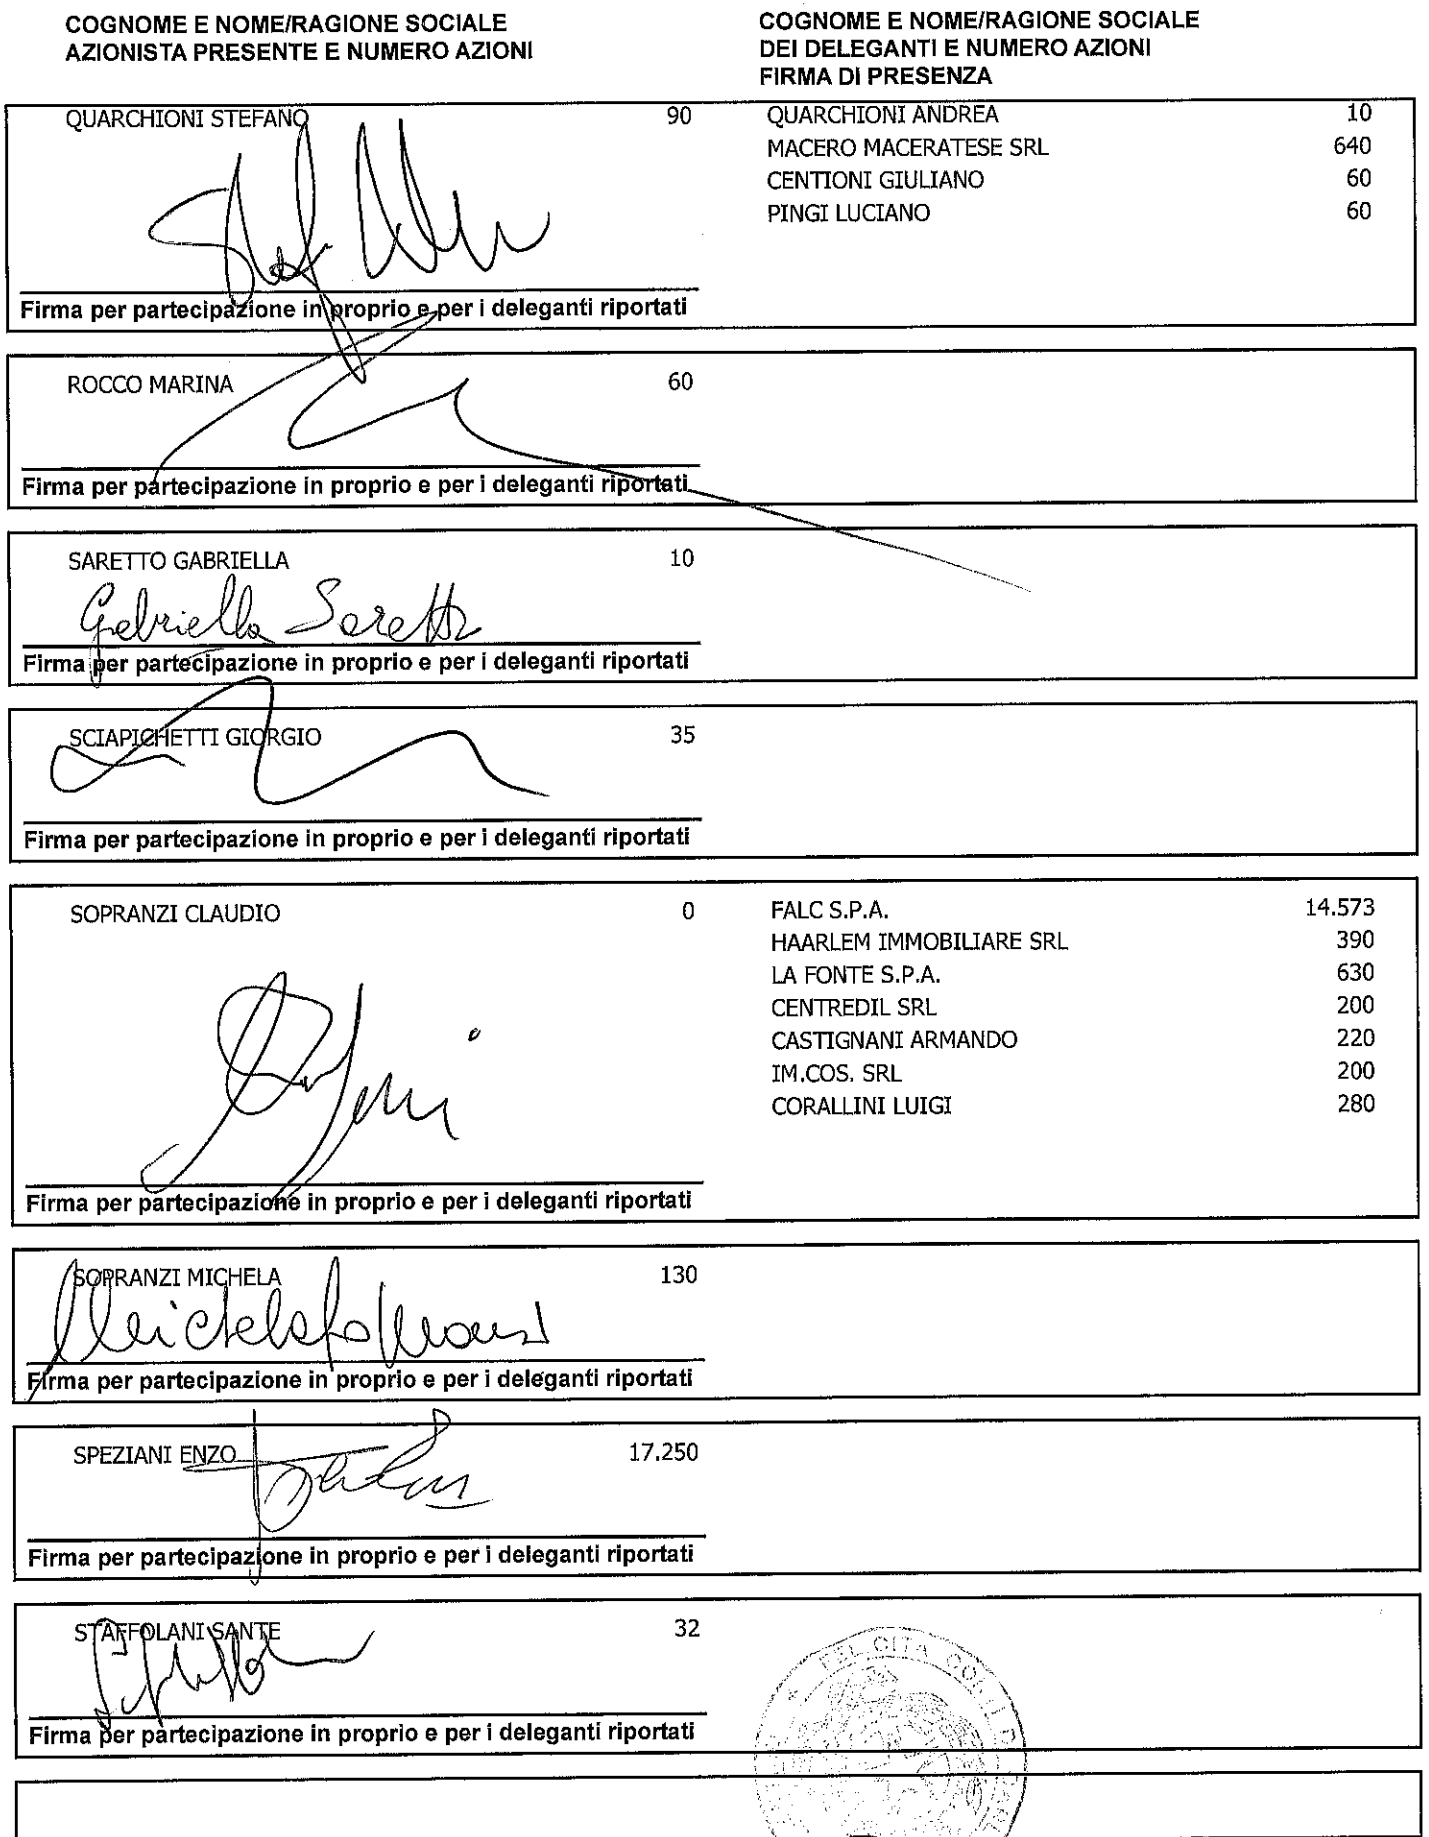 COGNOME E NOME/RAGIONE SOCIALE
AZIONISTA PRESENTE E NUMERO AZIONI
COGNOME E NOME/RAGIONE SOCIALE
DEI DELEGANTI E NUMERO AZIONI
FIRMA DI PRESENZA
QUARCHIONI STEFANO 90 QUARCHIONI ANDREA 10
MACERO MACERATESE SRL 640
CENTIONI GIULIANO 60
PINGI LUCIANO 60
Firma per partecipazione in proprio e per i deleganti riportati
ROCCO MARINA 60
Firma per partecipazione in proprio e per i deleganti riportati
SARETTO GABRIELLA 10
Gabriella Saretto
Firma per partecipazione in proprio e per i deleganti riportati
SCIAPICHETTI GIORGIO 35
Firma per partecipazione in proprio e per i deleganti riportati
SOPRANZI CLAUDIO 0 FALC S.P.A. 14.573
HAARLEM IMMOBILIARE SRL 390
LA FONTE S.P.A. 630
CENTREDIL SRL 200
CASTIGNANI ARMANDO 220
IM.COS. SRL 200
CORALLINI LUIGI 280
Firma per partecipazione in proprio e per i deleganti riportati
SOPRANZI MICHELA 130
Michela Sopranzi
Firma per partecipazione in proprio e per i deleganti riportati
SPEZIANI ENZO 17.250
Firma per partecipazione in proprio e per i deleganti riportati
STAFFOLANI SANTE 32
Firma per partecipazione in proprio e per i deleganti riportati